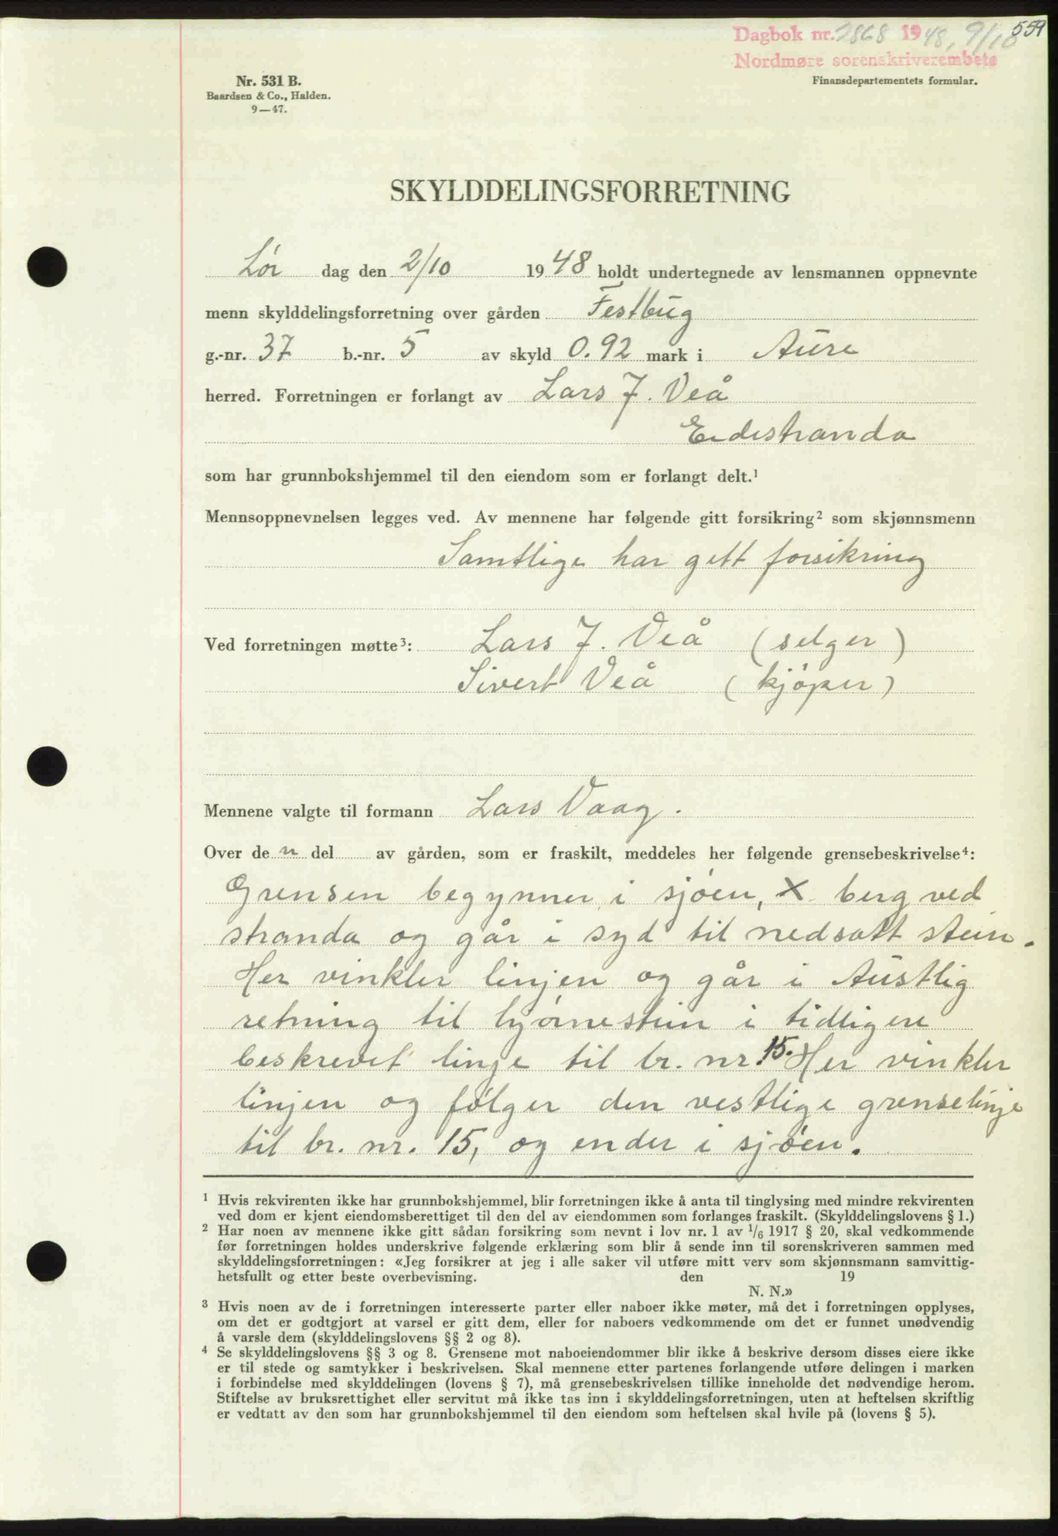 Dagbok nr. 2868 1948, 9/10 559
Nordmøre sorenskriverembete
Nr. 531 B.
Baardsen & Co., Halden.
9—47.
Finansdepartementets formular.
SKYLDDELINGSFORRETNING
Lør dag den 2/10 1948 holdt undertegnede av lensmannen oppnevnte
menn skylddelingsforretning over gården Festbug
g.-nr. 37 b.-nr. 5 av skyld 0.92 mark i Aure
herred. Forretningen er forlangt av Lars J. Veå
Eidestranda
som har grunnbokshjemmel til den eiendom som er forlangt delt.¹
Mennsoppnevnelsen legges ved. Av mennene har følgende gitt forsikring² som skjønnsmenn
Samtlige har gett forsikring
Ved forretningen møtte³: Lars J. Veå (selger)
Sivert Veå (kjöper)
Mennene valgte til formann Lars Vaag.
Over de n del av gården, som er fraskilt, meddeles her følgende grensebeskrivelse⁴:
Grensen begynner i sjöen, X berg ved
stranda og går i syd til nedsatt stein.
Her vinkler linjen og går i Austlig
retning til hjörnestein i tidligere
beskrevet linje til br. nr 15. Her vinkler
linjen og fölger den vestlige grenselinje
til br. nr. 15, og ender i sjöen.
¹ Hvis rekvirenten ikke har grunnbokshjemmel, blir forretningen ikke å anta til tinglysing med mindre rekvirenten
ved dom er kjent eiendomsberettiget til den del av eiendommen som forlanges fraskilt. (Skylddelingslovens § 1.)
² Har noen av mennene ikke gitt sådan forsikring som nevnt i lov nr. 1 av ¹/₆ 1917 § 20, skal vedkommende
før forretningen holdes underskrive følgende erklæring som blir å sende inn til sorenskriveren sammen med
skylddelingsforretningen: «Jeg forsikrer at jeg i alle saker vil utføre mitt verv som skjønnsmann samvittig-
hetsfullt og etter beste overbevisning. den 19
N. N.»
³ Hvis noen av de i forretningen interesserte parter eller naboer ikke møter, må det i forretningen opplyses,
om det er godtgjort at varsel er gitt dem, eller for naboers vedkommende om det er funnet unødvendig
å varsle dem (skylddelingslovens §§ 2 og 8).
⁴ Se skylddelingslovens §§ 3 og 8. Grensene mot naboeiendommer blir ikke å beskrive dersom disses eiere ikke
er til stede og samtykker i beskrivelsen. Skal mennene etter partenes forlangende utføre delingen i marken
i forbindelse med skylddelingen (lovens § 7), må grensebeskrivelsen tillike inneholde det nødvendige herom.
Stiftelse av bruksrettighet eller servitut må ikke tas inn i skylddelingsforretningen, uten at heftelsen skriftlig
er vedtatt av den som har grunnbokshjemmel til den eiendom som heftelsen skal hvile på (lovens § 5).